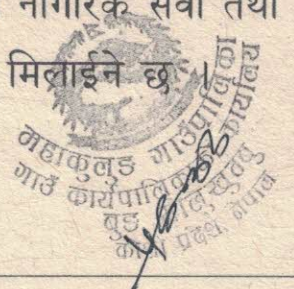 नागरिक सेवा तथा
मिलाईने छ ।
महाकुलुङ गाउँपालिका
गाउँ कार्यपालिकाको कार्यालय
बुङ, सोलुखुम्बु
प्रदेश, नेपाल